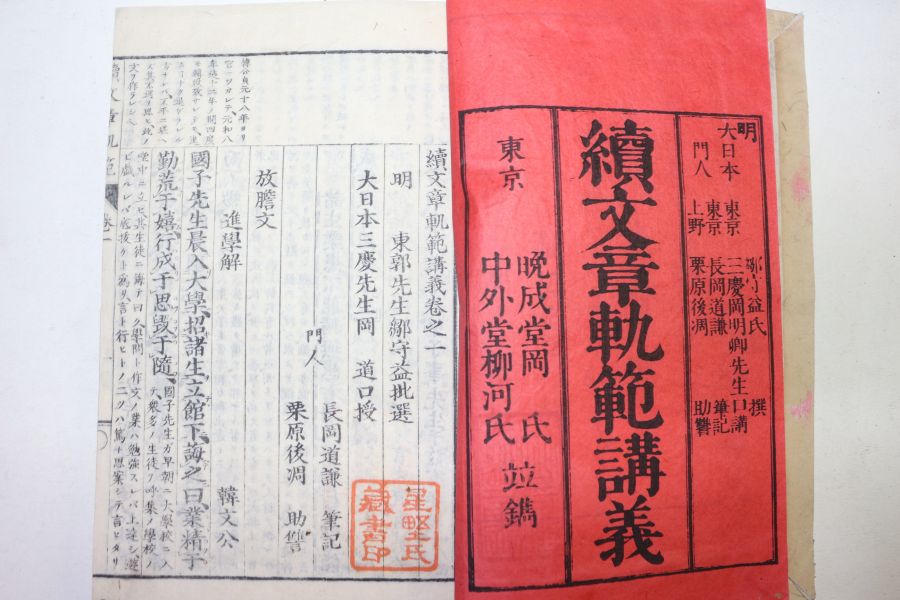 明 鄒守益氏 撰
大日本 東京 三慶岡明卿先生口講
東京 長岡道謙 筆記
門人 上野 栗原後凋 助讐
續文章軌範講義
東京 晩成堂岡 氏
中外堂柳河氏 竝鐫
續文章軌範講義卷之一
明 東郭先生鄒守益批選
大日本三慶先生岡 道口授
門人 長岡道謙 筆記
栗原後凋 助讐
放膽文
進學解 韓文公
國子先生晨入大學招諸生立館下誨之曰業精于
勤荒于嬉行成于思毀于隨
國子先生ガ早朝ニ大學校ニ入
テ衆多ノ生徒ヲ呼集メ學校ノ
堂中ニ立セ其生徒ニ誨テ曰ク學問ト作文ノ業ハ勉強スレバ上達シ遊
ビ戯ルレバ
藏書印